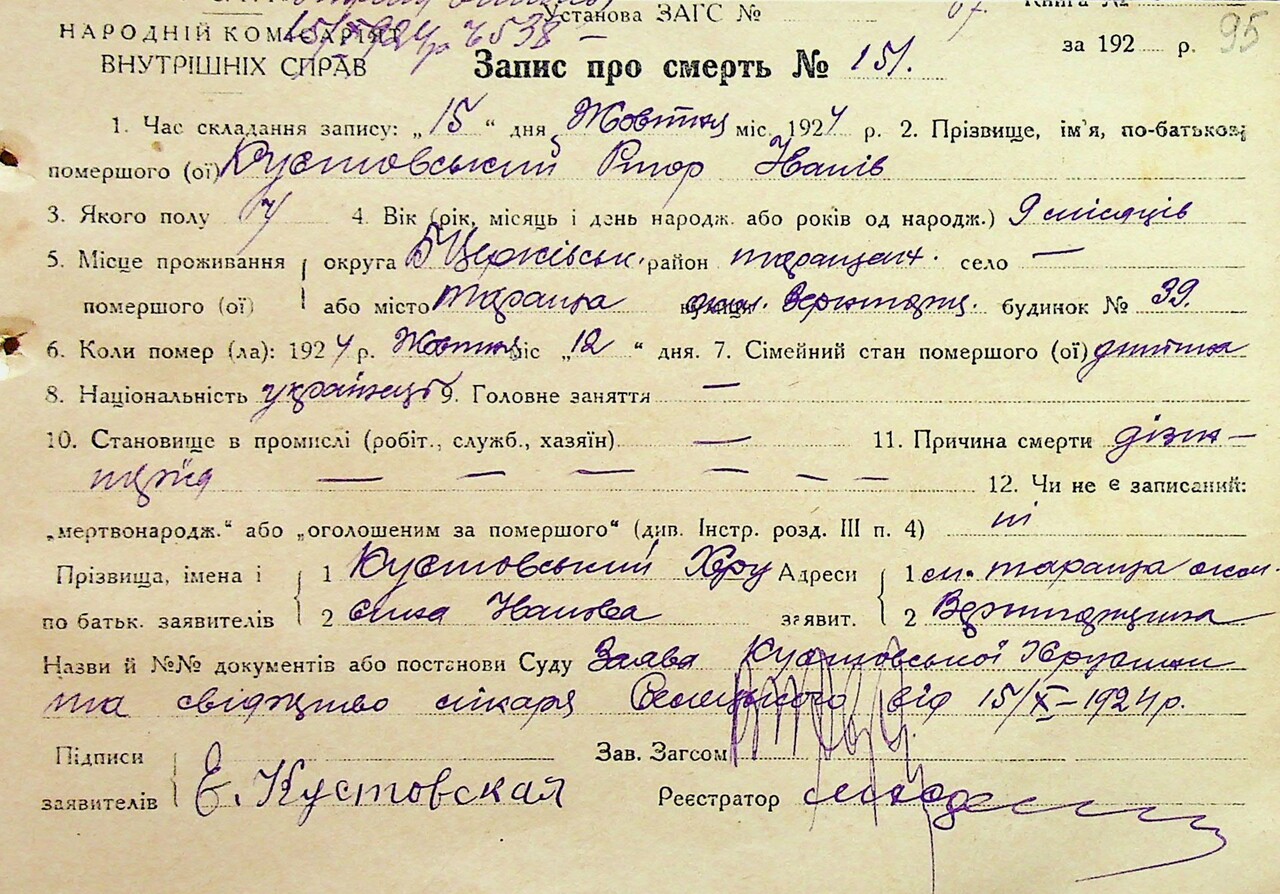 Установа ЗАГС № 67. Книга №
15/X 1924 р 7538 —
НАРОДНІЙ КОМІСАРІЯТ за 192 р. 95
ВНУТРІШНІХ СПРАВ Запис про смерть № 151.
1. Час складання запису: „15“ дня Жовтня міс. 1924 р. 2. Прізвище, ім'я, по-батькові
помершого (ої) Кустовський Іванів
3. Якого полу Ч 4. Вік (рік, місяць і день народж. або років од народж.) 9 місяців
5. Місце проживання округа Б Церківськ. район таращан. село —
помершого (ої) або місто Тараща вулиця будинок № 39.
6. Коли помер (ла): 1924 р. Жовтня міс „12“ дня. 7. Сімейний стан помершого (ої) дитина
8. Національність українець 9. Головне заняття —
10. Становище в промислі (робіт., служб., хазяїн). — 11. Причина смерти дізен-
терія — — — — — 12. Чи не є записаний:
„мертвонародж.“ або „оголошеним за помершого“ (див. Інстр. розд. III п. 4) ні
Прізвища, імена і 1 Кустовський Адреси 1 м. Тараща
по батьк. заявителів 2 Іванова заявит. 2
Назви й №№ документів або постанови Суду Заява Кустовської
та свідоцтво лікаря від 15/X-1924 р.
Підписи Зав. Загсом
заявителів Е. Кустовская Реєстратор